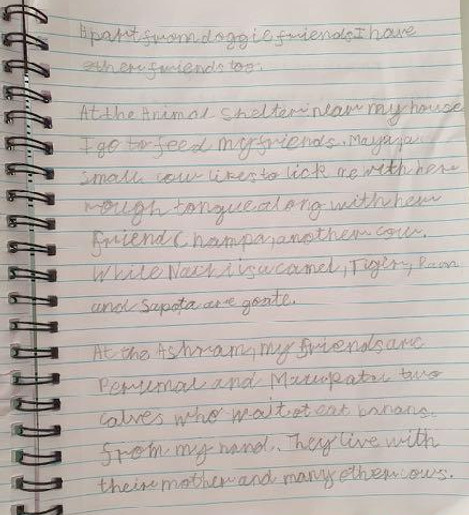 Apart from doggie friends I have
other friends too.
At the Animal shelter near my house
I go to feed my friends. Maya, a
small cow likes to lick me with her
rough tongue along with her
friend Champa, another cow.
While Nachi is a camel, Tiger, Raon
and Sapota are goate.
At the Ashram, my friends are
Perumal and two
calves who wait ot eat banana.
from my hand. They live with
their mother and many other cows.